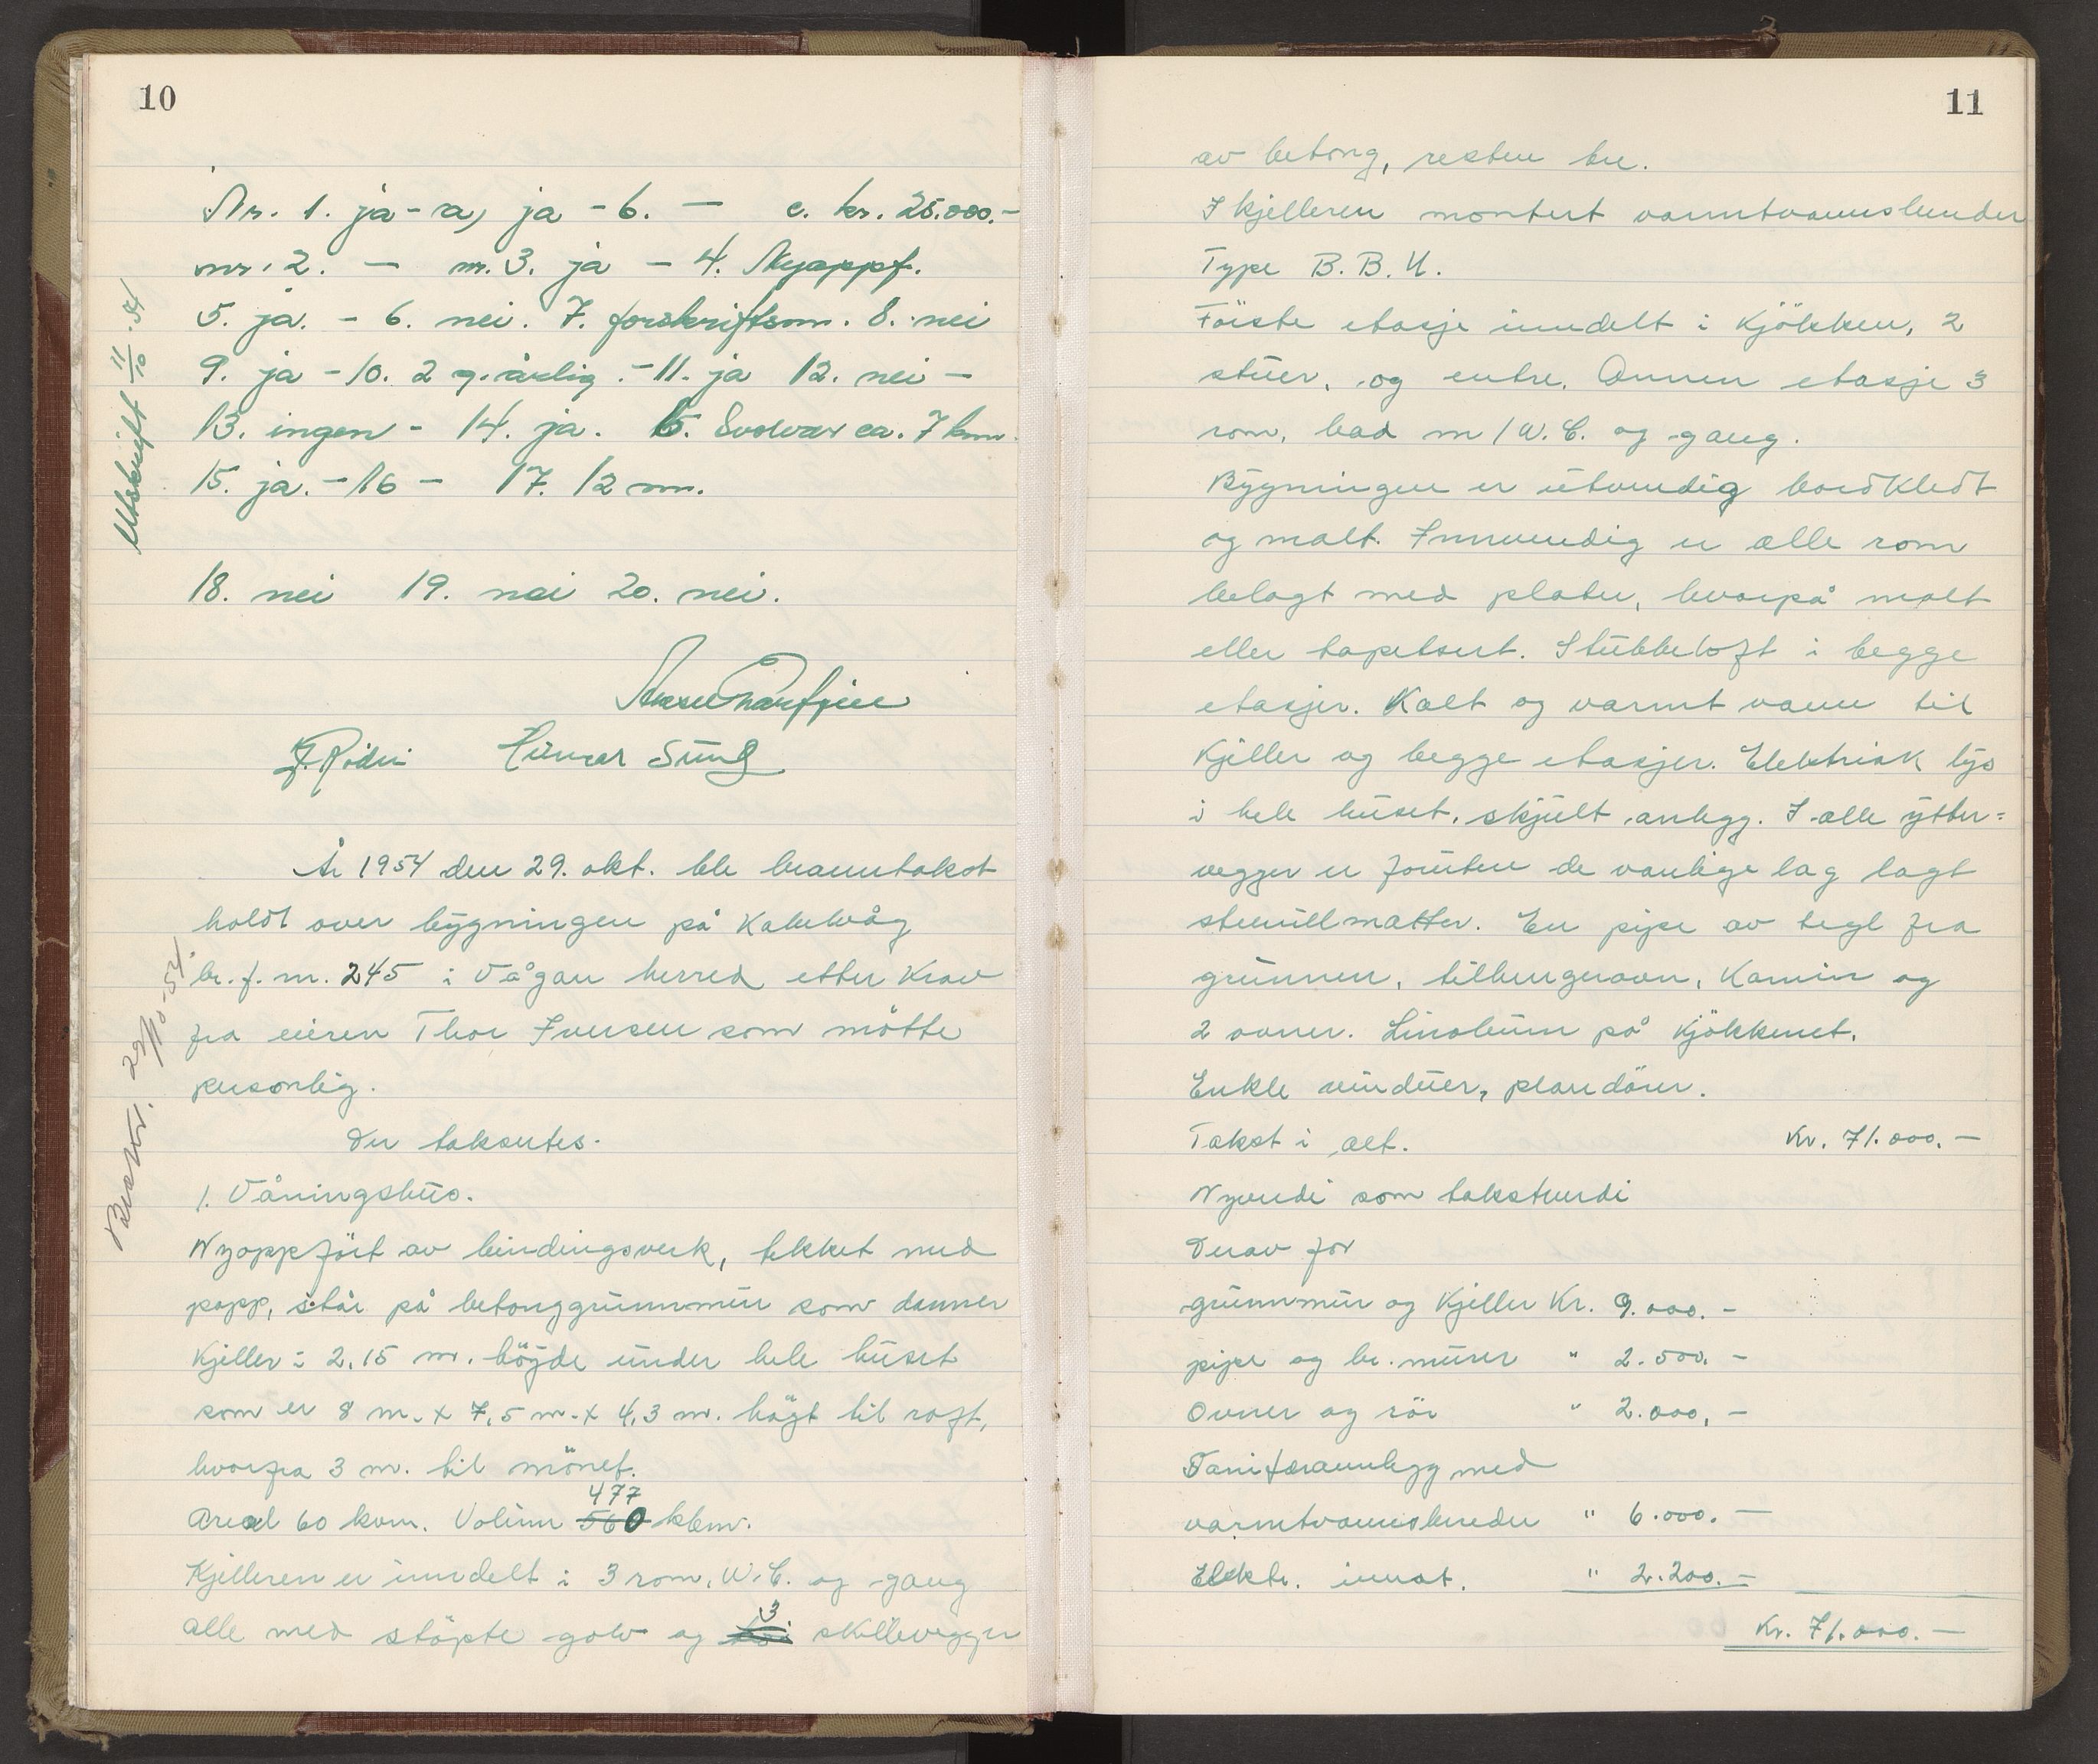 10
Nr. 1. ja - a, ja - b. — c. kr. 25.000.-
nr. 2. — nr. 3. ja - 4. Nyoppf.
5. ja. - 6. nei. 7. forskriftsm. 8. nei
9. ja - 10. 2 g. årlig. - 11. ja 12. nei -
13. ingen - 14. ja. 15. Svolvær ca. 7 km.
15. ja. - 16 - 17. 12 m.
18. nei 19. nei 20. nei.
Utskrift 11/10-54
Hilmar Sund
År 1954 den 29. okt. ble branntakst
holdt over bygningen på Kabelvåg
br. f. nr. 245 i Vågan herred etter krav
fra eieren Thor Iversen som møtte
personlig.
Der taksertes.
29/10-54.
1. Våningshus.
Nyoppført av bindingsverk, tekket med
papp, står på betonggrunnmur som danner
kjeller i 2,15 m. höyde under hele huset
som er 8 m. x 7,5 m. x 4,3 m. högt til raft,
hvorfra 3 m. til mönet.
477
Areal 60 kvm. Volum 560 kbm.
Kjelleren er inndelt i 3 rom, W.C. og gang
3
alle med stöpte golv og skillevegger
11
av betong, resten tre.
I kjelleren montert varmtvannsbereder
Type B.B.U.
Förste etasje inndelt i kjökken, 2
stuer, og entre. Annen etasje 3
rom, bad m/W.C. og gang.
Bygningen er utvendig bordkledt
og malt. Innvendig er alle rom
belagt med plater, hvorpå malt
eller tapetsert. Stubbeloft i begge
etasjer. Kalt og varmt vann til
kjeller og begge etasjer. Elektrisk lys
i hele huset, skjult anlegg. I alle ytter=
vegger er foruten de vanlige lag lagt
steinullmatter. En pipe av tegl fra
grunnen, etasjeovn, kamin og
2 ovner. Linoleum på kjökkenet.
Enkle vinduer, plandörer.
Takst i alt. Kr. 71.000.—
Nyverdi som takstverdi
Derav for
grunnmur og kjeller Kr. 9.000.-
pipe og br. murer " 2.500.-
Ovner og rör " 2.000,-
Sanitæranlegg med
varmtvannsbereder " 6.000.—
Elektr. innst. " 2.200.—
Kr. 71.000.—